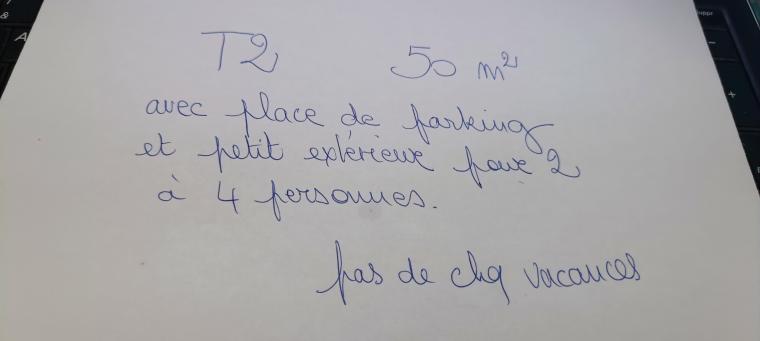 T2 50 m²
avec place de parking
et petit extérieur pour 2
à 4 personnes.
pas de chq vacances